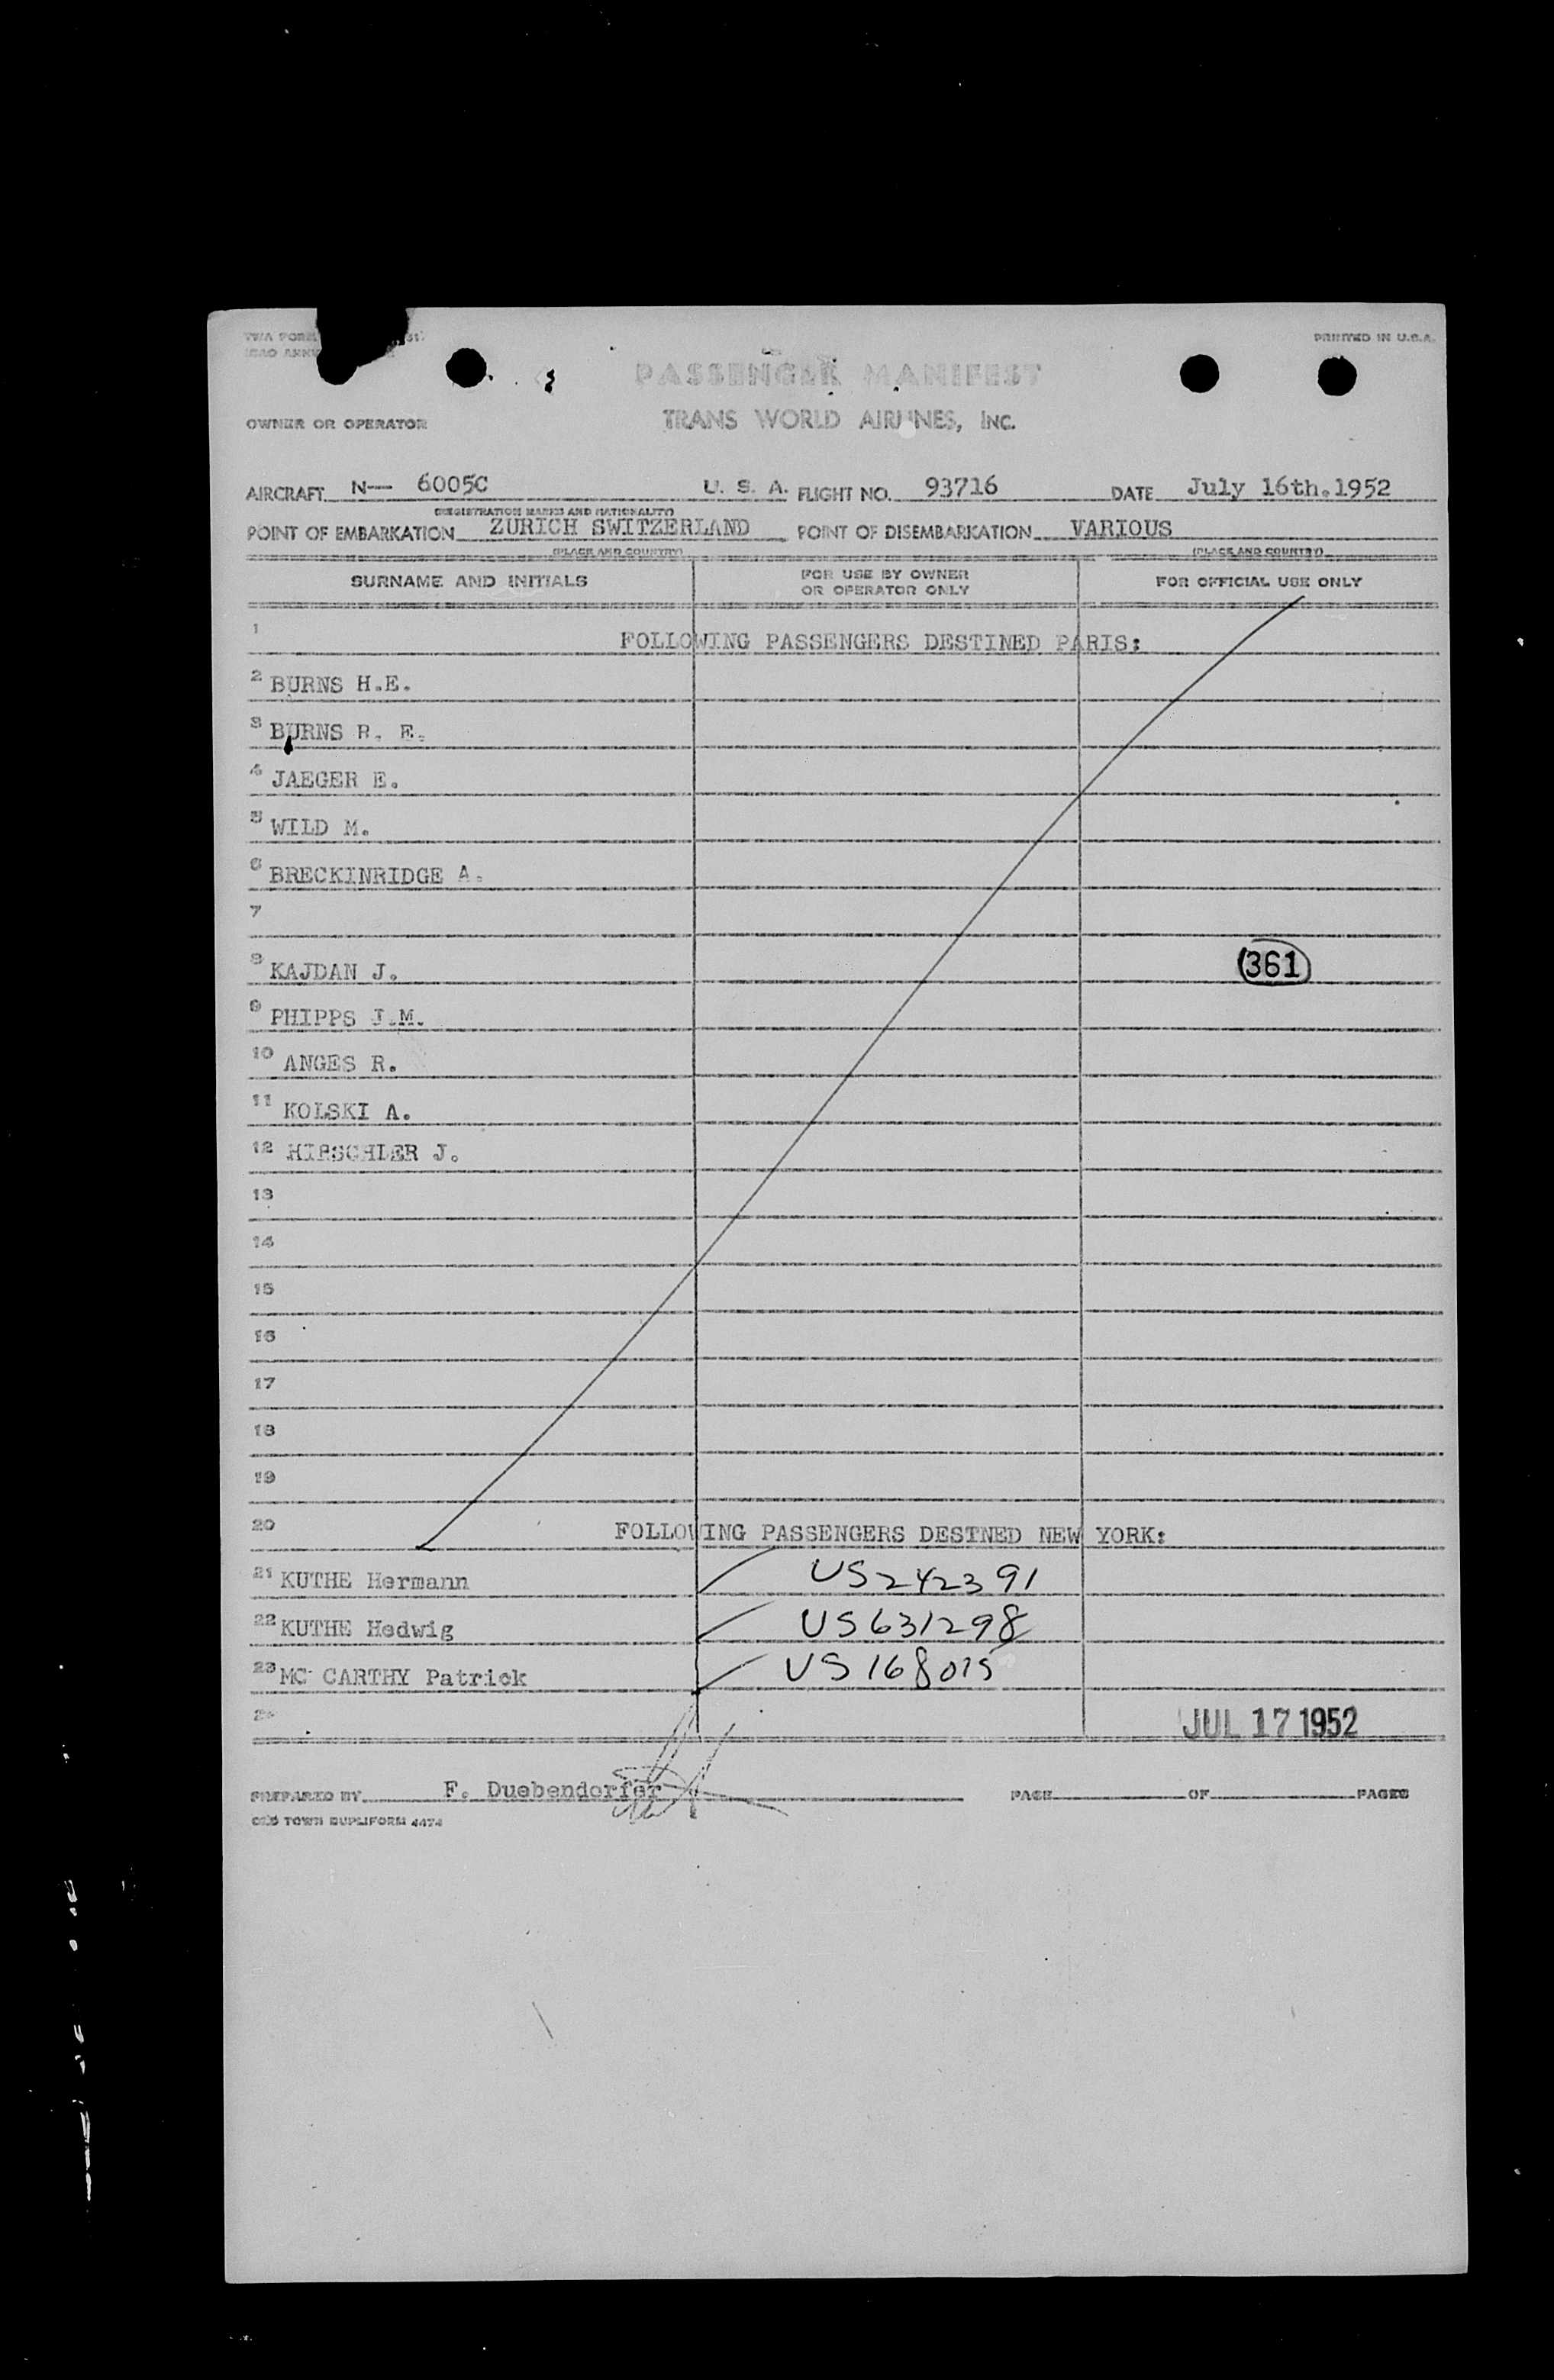 TWA FORM
ICAO ANN
PRINTED IN U.S.A.
PASSENGER MANIFEST
OWNER OR OPERATOR TRANS WORLD AIRLINES, INC.
AIRCRAFT N— 6005C U. S. A. FLIGHT NO. 93716 DATE July 16th.1952
(REGISTRATION MARKS AND NATIONALITY)
POINT OF EMBARKATION ZURICH SWITZERLAND POINT OF DISEMBARKATION VARIOUS
(PLACE AND COUNTRY) (PLACE AND COUNTRY)
SURNAME AND INITIALS FOR USE BY OWNER OR OPERATOR ONLY FOR OFFICIAL USE ONLY
1 FOLLOWING PASSENGERS DESTINED PARIS:
2 BURNS H.E.
3 BURNS R. E.
4 JAEGER E.
5 WILD M.
6 BRECKINRIDGE A.
7
8 KAJDAN J. 361
9 PHIPPS J.M.
10 ANGES R.
11 KOLSKI A.
12 HIRSCHLER J.
13
14
15
16
17
18
19
20 FOLLOWING PASSENGERS DESTNED NEW YORK:
21 KUTHE Hermann US242391
22 KUTHE Hedwig US631298
23 MC CARTHY Patrick US168015
24 JUL 17 1952
PREPARED BY F. Duebendorfer PAGE OF PAGES
OLD TOWN DUPLIFORM 4474